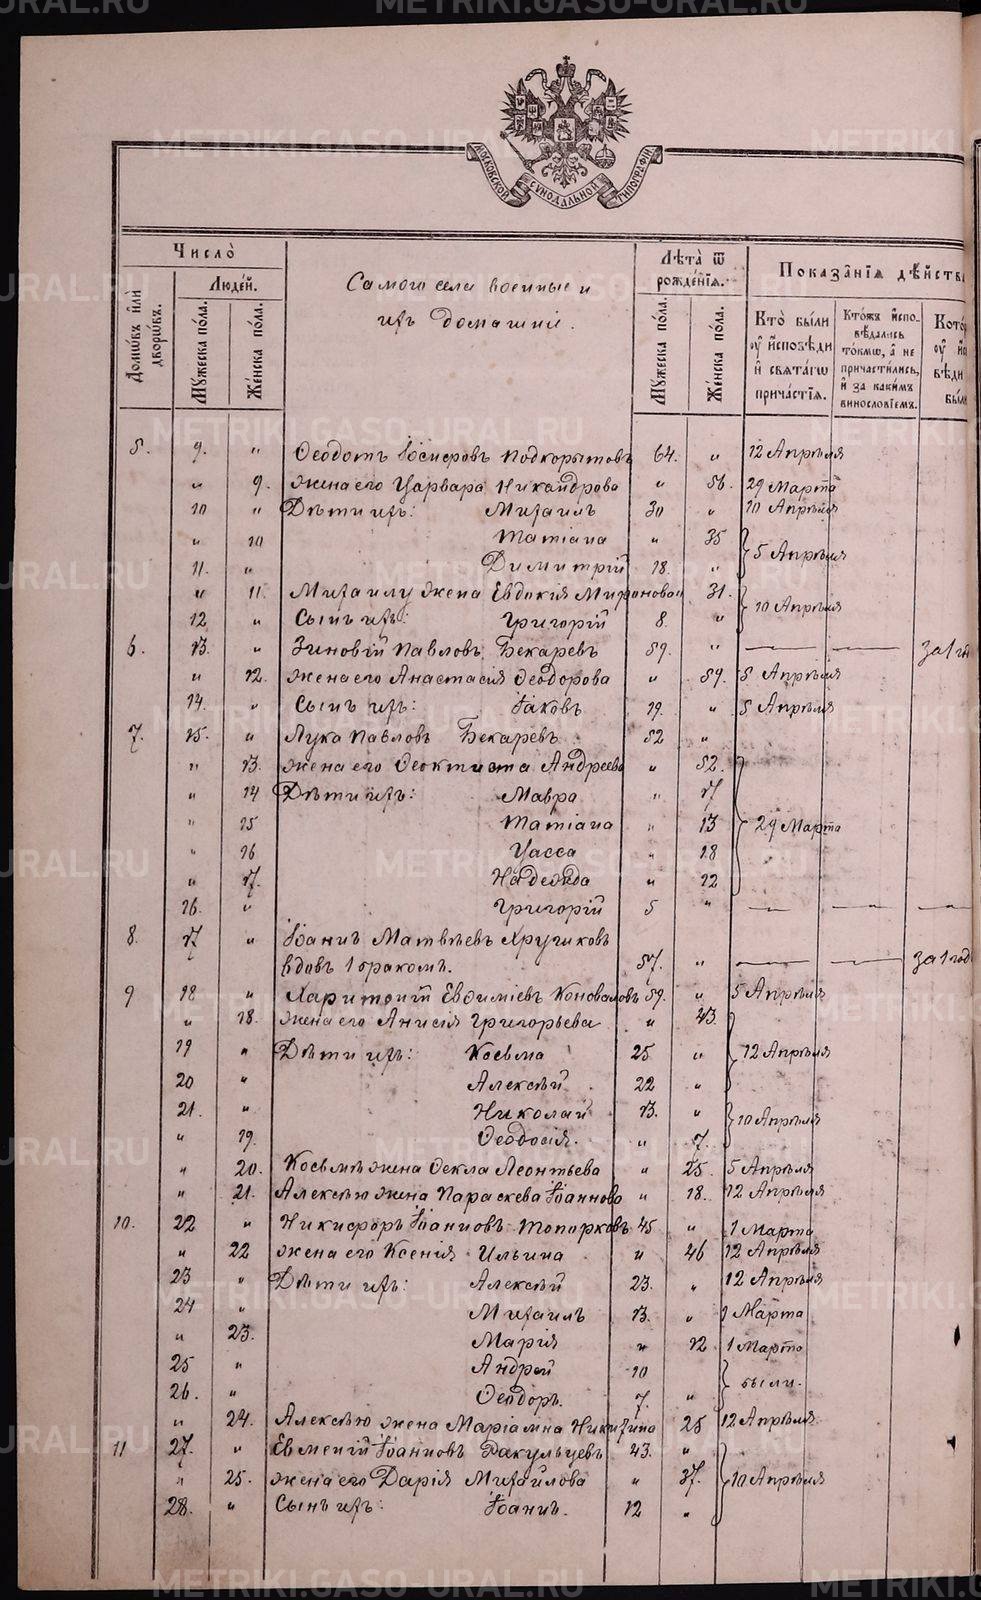 METRIKI.GASO-URAL.RU
МОСКОВСКОЙ СѴНОДАЛЬНОЙ ТИПОГРАФІИ.
Число̀
Домѡвъ и҆лѝ дворѡвъ.
Людей.
Мꙋжеска по́ла.
Же́нска по́ла.
Самого села военные и
ихъ домашніе.
Лѣта̀ ѿ рожде́нїѧ.
Мꙋжеска по́ла.
Же́нска по́ла.
Показа̑нїѧ дѣйств
Кто̀ бы́ли ᲂу҆ и҆сповѣди и҆ свѧта́гѡ прича́стїѧ.
Кто́жъ и҆спо-вѣдались то́кмѡ, а҆ не причасти́лись, и҆ за каки́мъ винослові́емъ.
5. 9. " Ѳеодотъ Іосифовъ Подкорытовъ 64. " 12 Апрѣля
" 9. Жена его Варвара Никандрова " 56. 29 Марта
10 " Дѣти ихъ: Михаилъ 30 " 10 Апрѣля
" 10 Татіана " 35
11. " Димитрій 18. " } 5 Апрѣля
" 11. Михаилу жена Евдокія Миронова 31.
12 " Сынъ ихъ: Григорій 8. " } 10 Апрѣля
6. 13. " Зиновій Павловъ Бекаревъ 59. " — — за 1 го
" 12. Жена его Анастасія Ѳеодорова " 59. 5 Апрѣля
14. " Сынъ ихъ: Іаковъ 19. " 5 Апрѣля
7. 15. " Лука Павловъ Бекаревъ 52 "
" 13. Жена его Ѳеоктиста Андреева " 52.
" 14 Дѣти ихъ: Мавра " 17
" 15 Татіана " 13 } 29 Марта
" 16 Васса " 18
" 17. Надежда " 12
16. " Григорій 5 " — — —
8. 17 " Іоаннъ Матвѣевъ
вдовъ 1 бракомъ. 57. " — — за 1 год
9 18 " Харитоній Евфиміевъ Коноваловъ 59. " 5 Апрѣля
" 18. Жена его Анисія Григорьева " 43.
19 " Дѣти ихъ: Косьма 25 " } 12 Апрѣля
20 " Алексѣй 22 "
21. " Николай 13. " } 10 Апрѣля
" 19. Ѳеодосія. " 7.
" 20. Косьмѣ жена Ѳекла Леонтьева " 25. 5 Апрѣля
" 21. Алексѣю жена Параскева Іоаннова " 18. 12 Апрѣля
10. 22 " Никифоръ Іоанновъ Топорковъ 45 " 1 Марта
" 22 Жена его Ксенія Ильина " 46 12 Апрѣля
23 " Дѣти ихъ: Алексѣй 23. " 12 Апрѣля
24 " Михаилъ 13. " 1 Марта
" 23. Марія " 12 1 Марта
25 " Андрей 10
26. " Ѳеодоръ. 7. " } были.
" 24. Алексѣю жена Маріамна Никитина 25 12 Апрѣля
11 27. " Евменій Іоанновъ Ракульцевъ 43. "
" 25. Жена его Дарія Михайлова " 37. } 10 Апрѣля
28. " Сынъ ихъ: Іоаннъ. 12 "